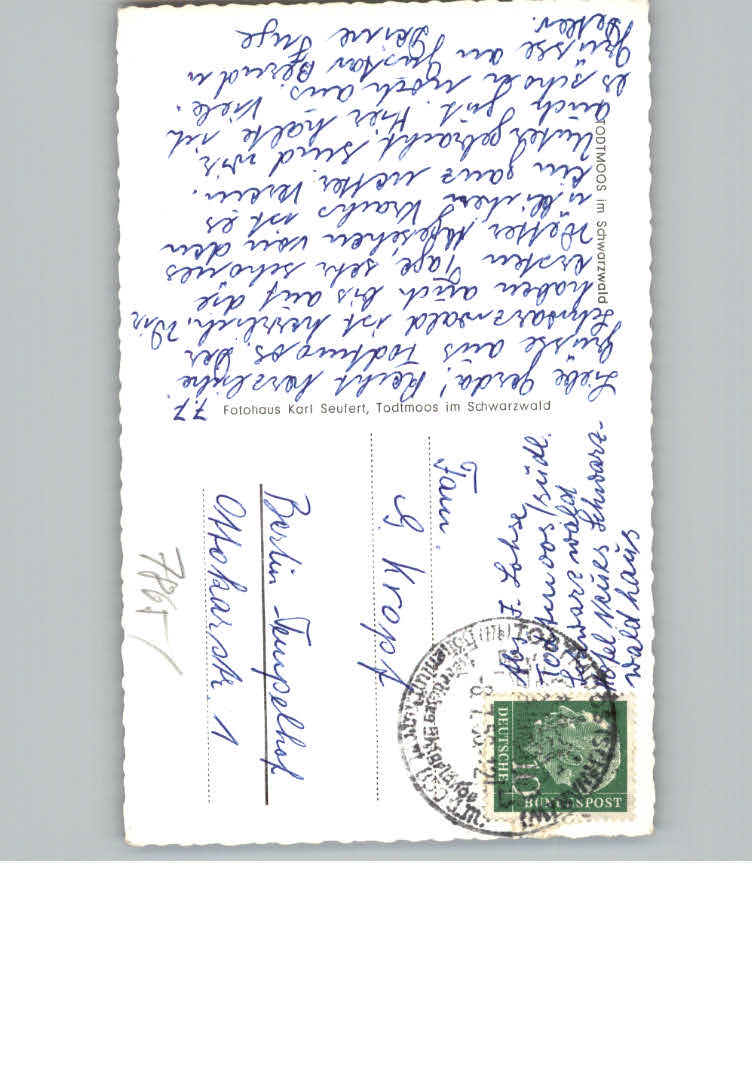 7.7.
Liebe Gerda! Recht herzliche
Grüsse aus Todtmoos. Der
Schwarzwald ist herrlich. Wir
haben auch bis auf die
ersten Tage, sehr schönes
Wetter. Abgesehen von den
üblichen Krachs ist es
ein ganz netter Verein.
Untergebracht sind wir
auch gut. Hier halte ich
es schon noch aus. Viele
Grüsse an Gustav Bernd u
Detlev.
Deine Inge
TODTMOOS im Schwarzwald
Fotohaus Karl Seufert, Todtmoos im Schwarzwald
Abs. F. Lohse
Todtmoos/südl.
Schwarzwald
Hotel Neues Schwarz-
wald haus
DEUTSCHE
BUNDESPOST
10
TODTMOOS
Fam.
G. Kropf
Berlin Tempelhof
Ottokarstr. 1
7865/